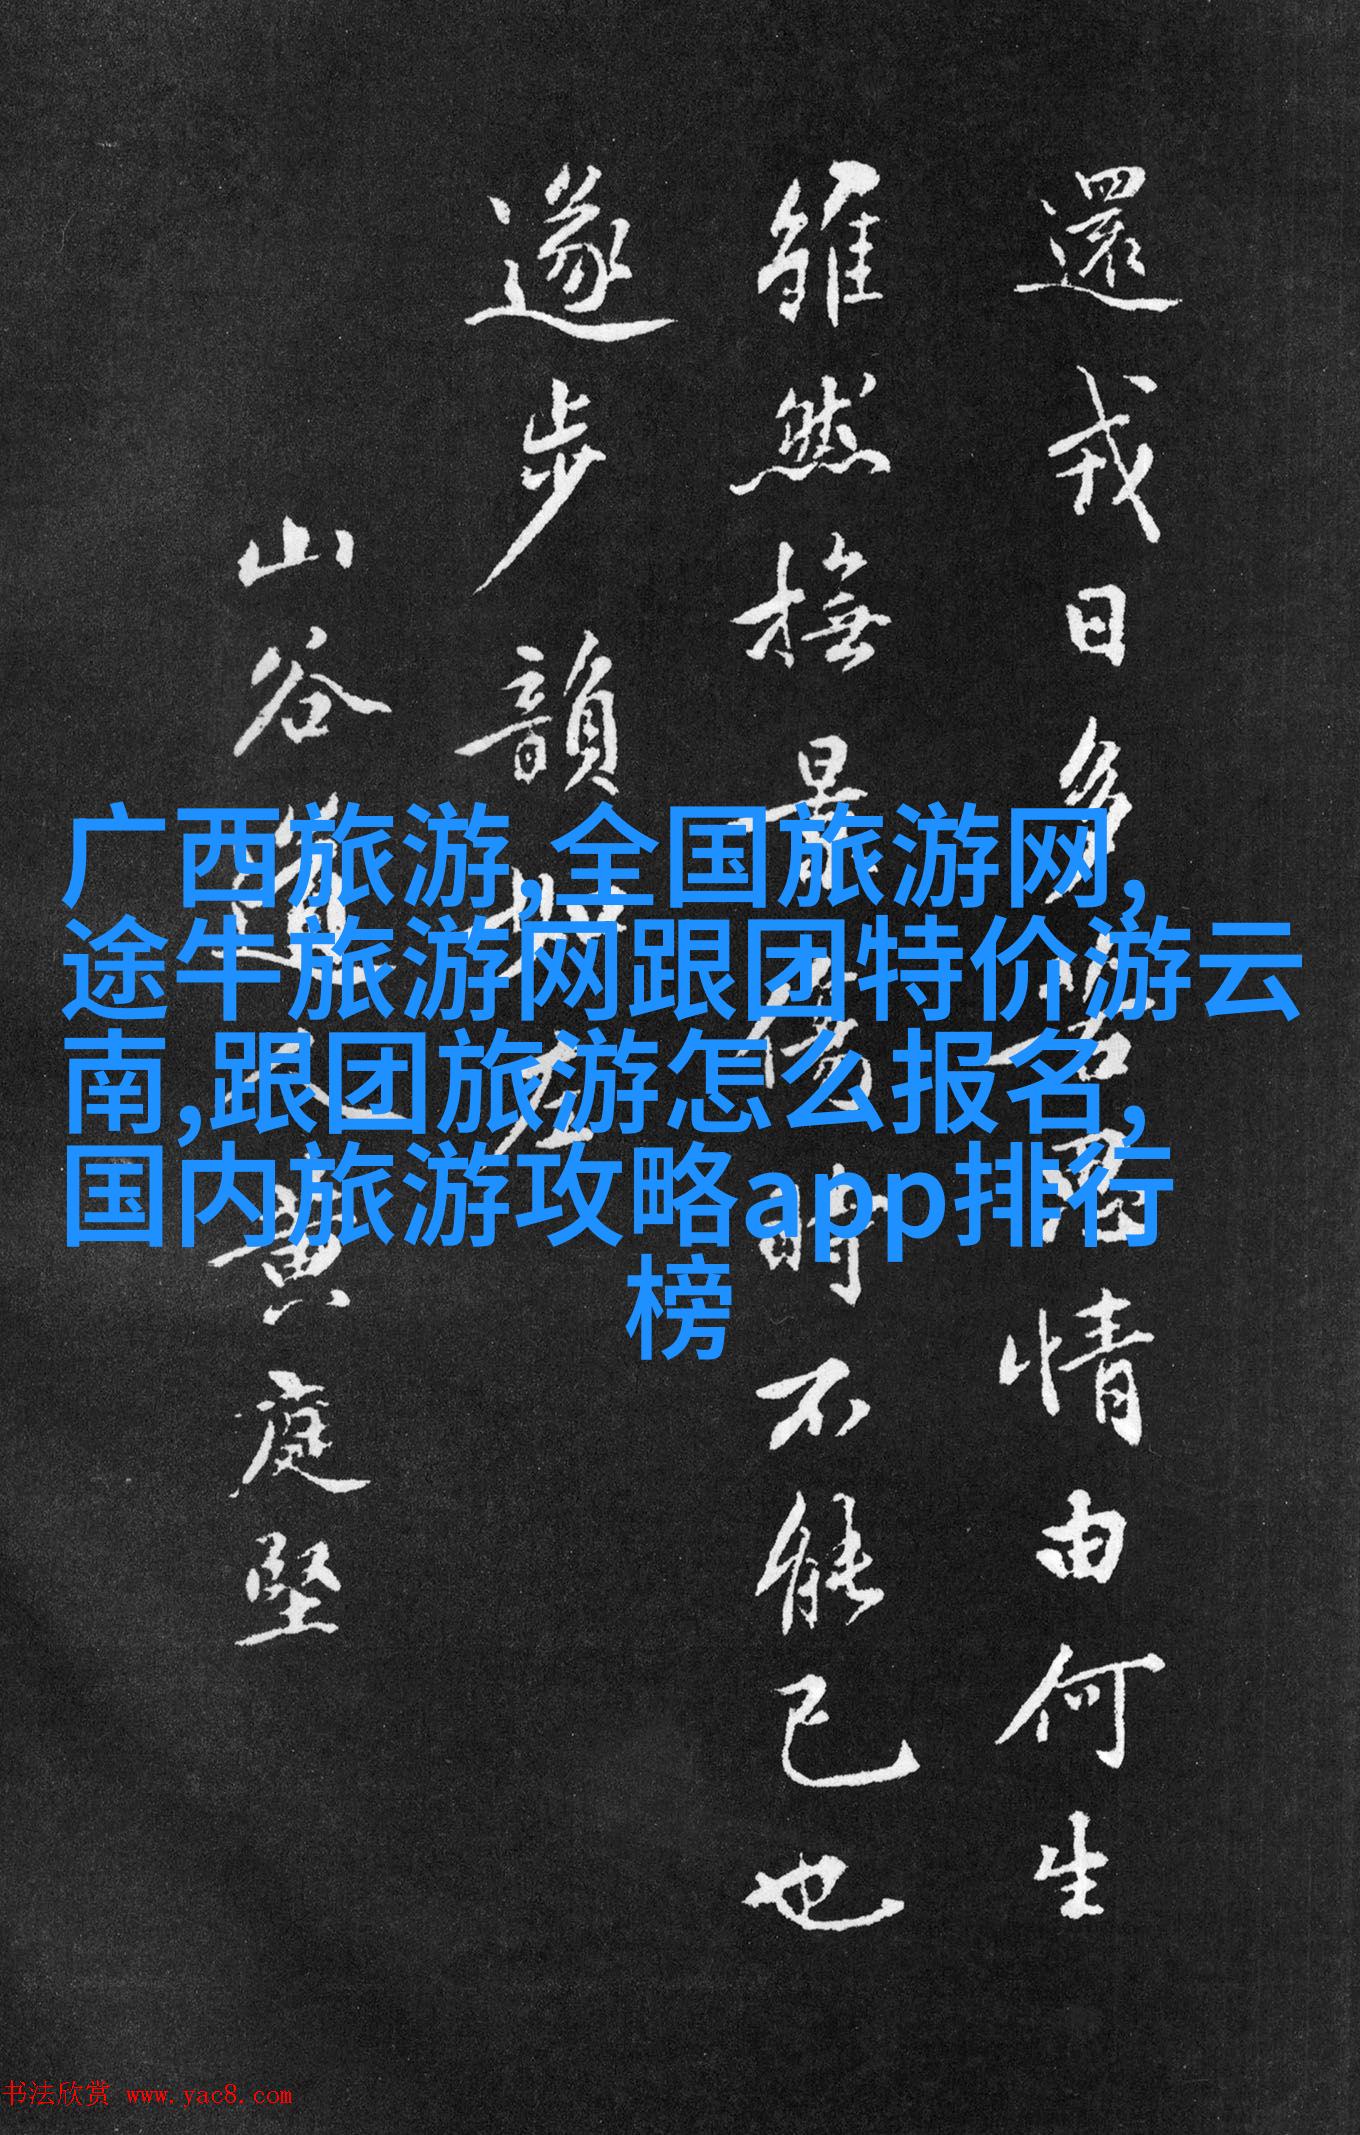 還戎日多名酒情由何生
雖然撫景傷時不能已也
遂步韻如左
山谷道人黄庭堅
广西旅游,全国旅游网,
途牛旅游网跟团特价游云
南,跟团旅游怎么报名,
国内旅游攻略app排行
榜
书法欣赏 www.yac8.com